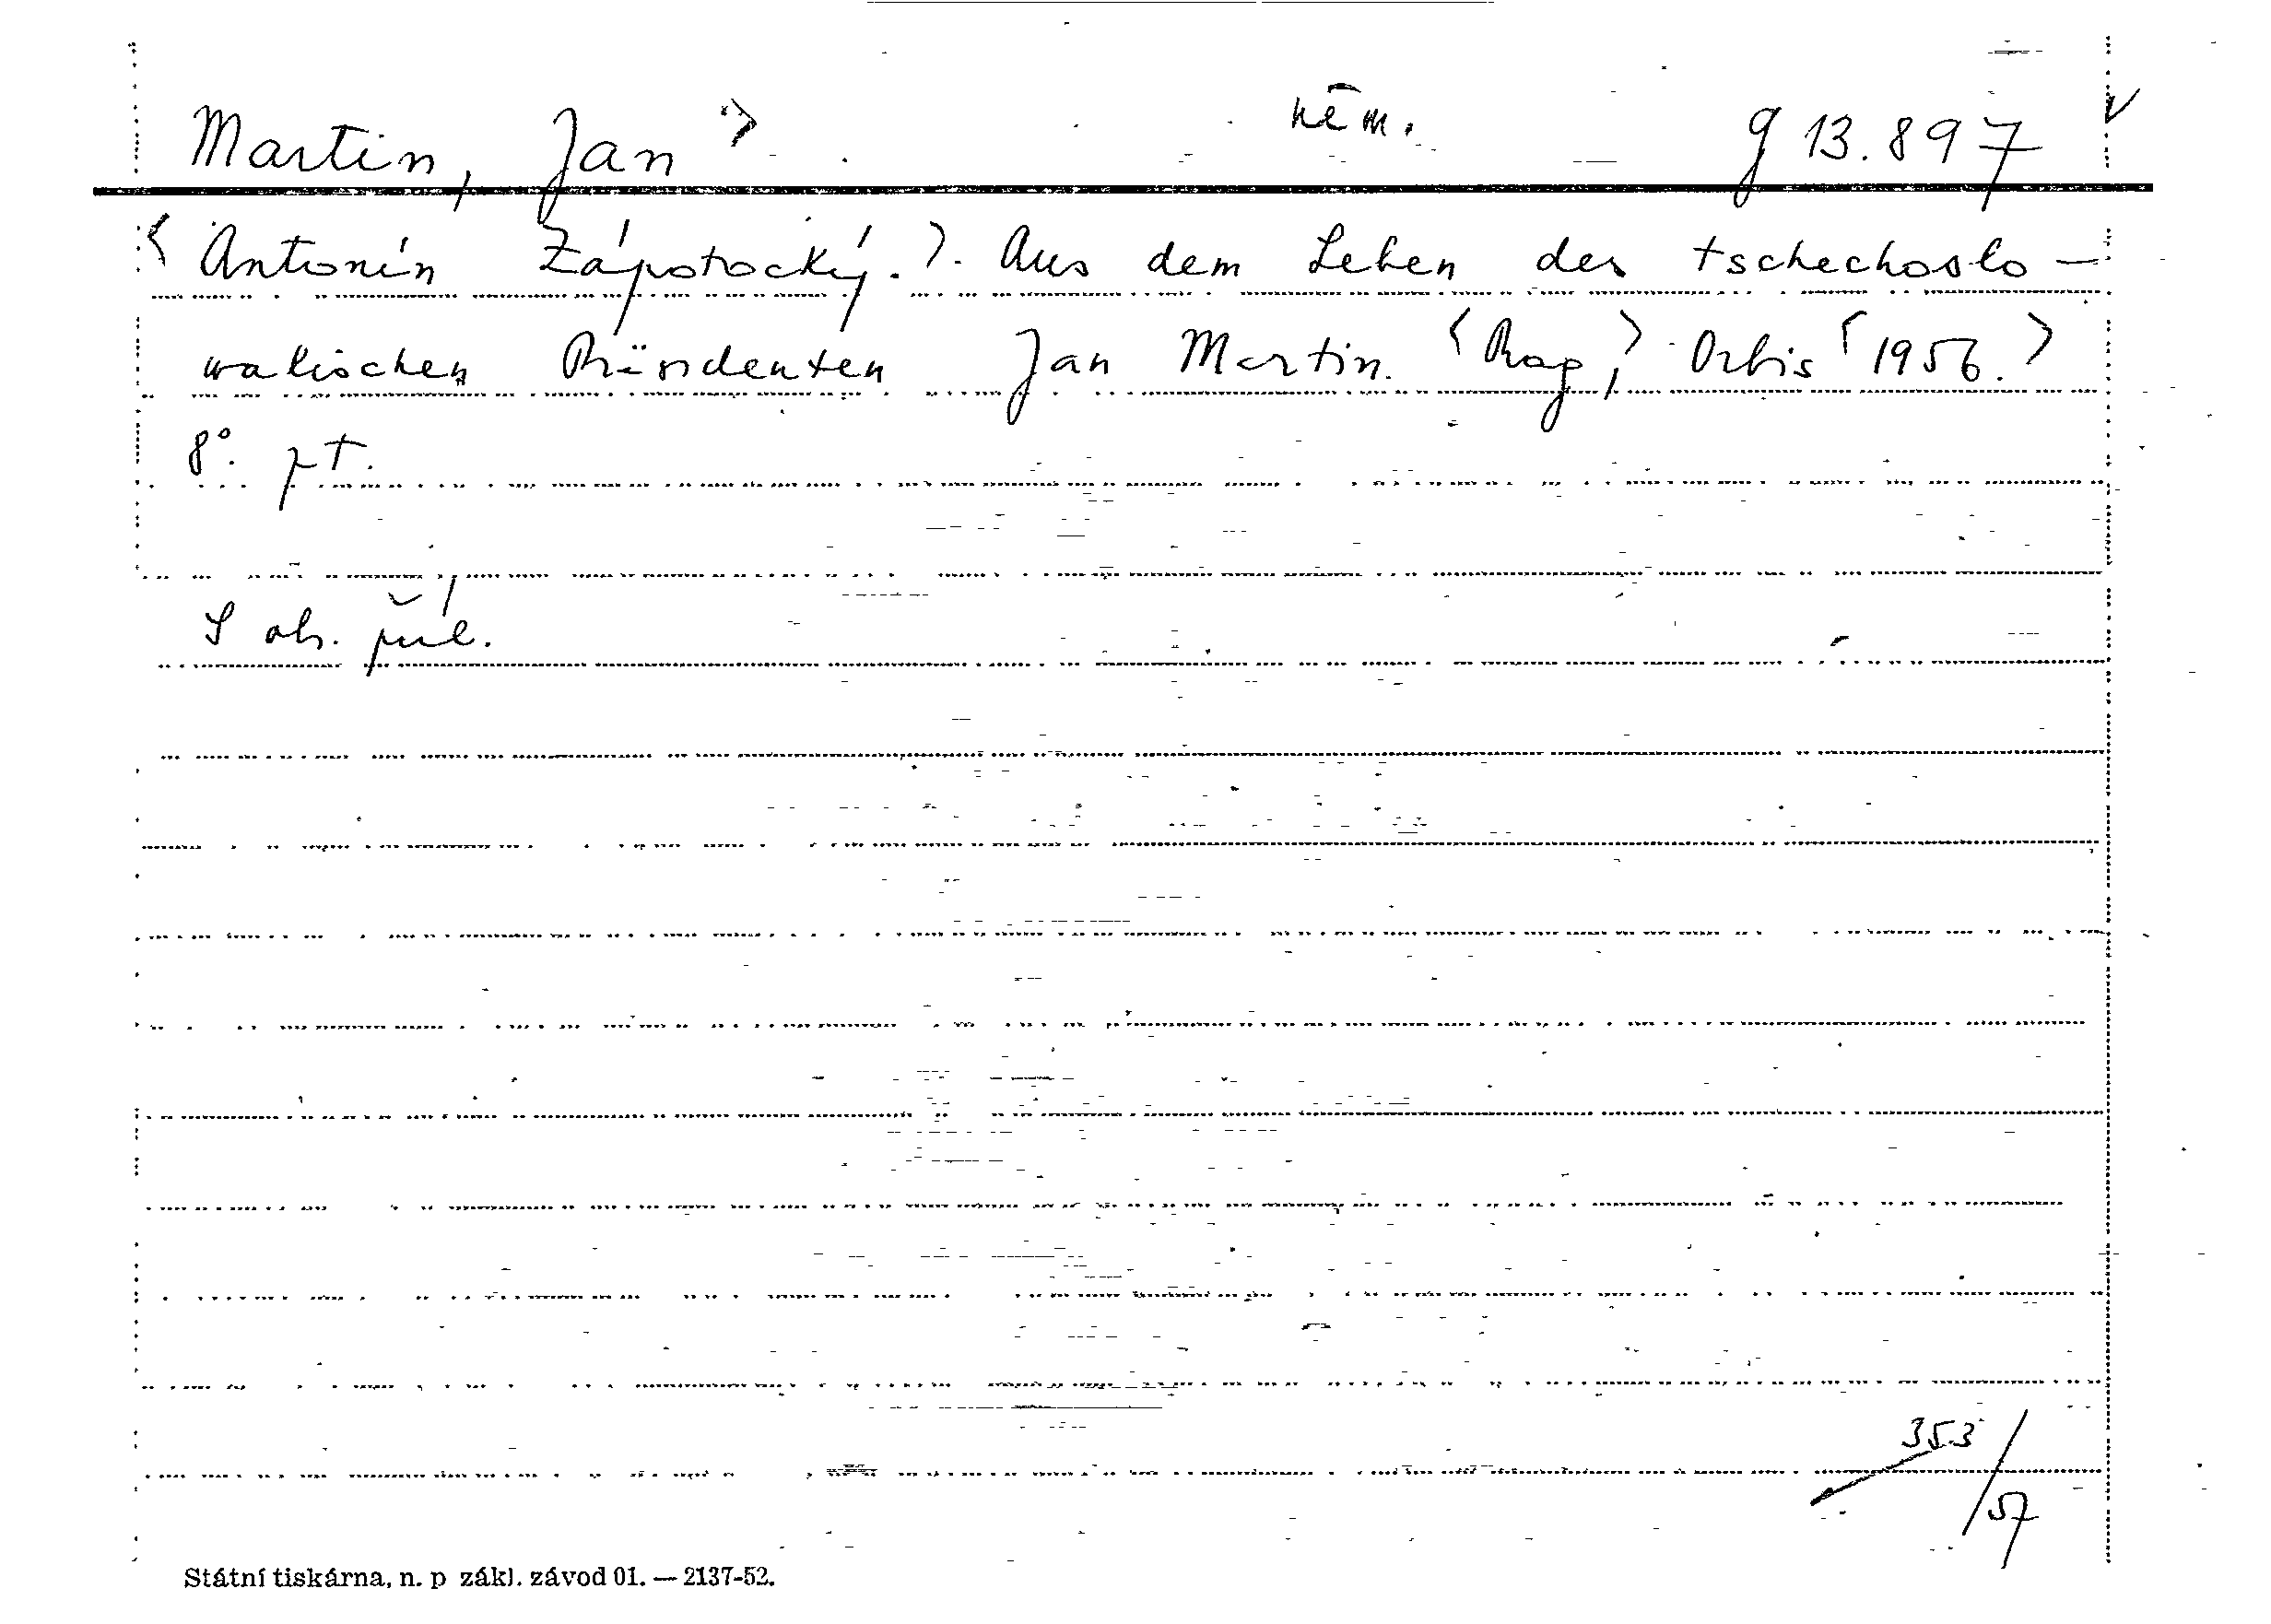 Martin, Jan něm. g 13.897
⟨Antonín Zápotocký.⟩. Aus dem Leben des tschechoslo-
wakischen Präsidenten Jan Martin. ⟨Prag,⟩ Orbis ⟨1956.⟩
8°.
S ob. příl.
353/57
Státní tiskárna, n. p zákl. závod 01. — 2137-52.